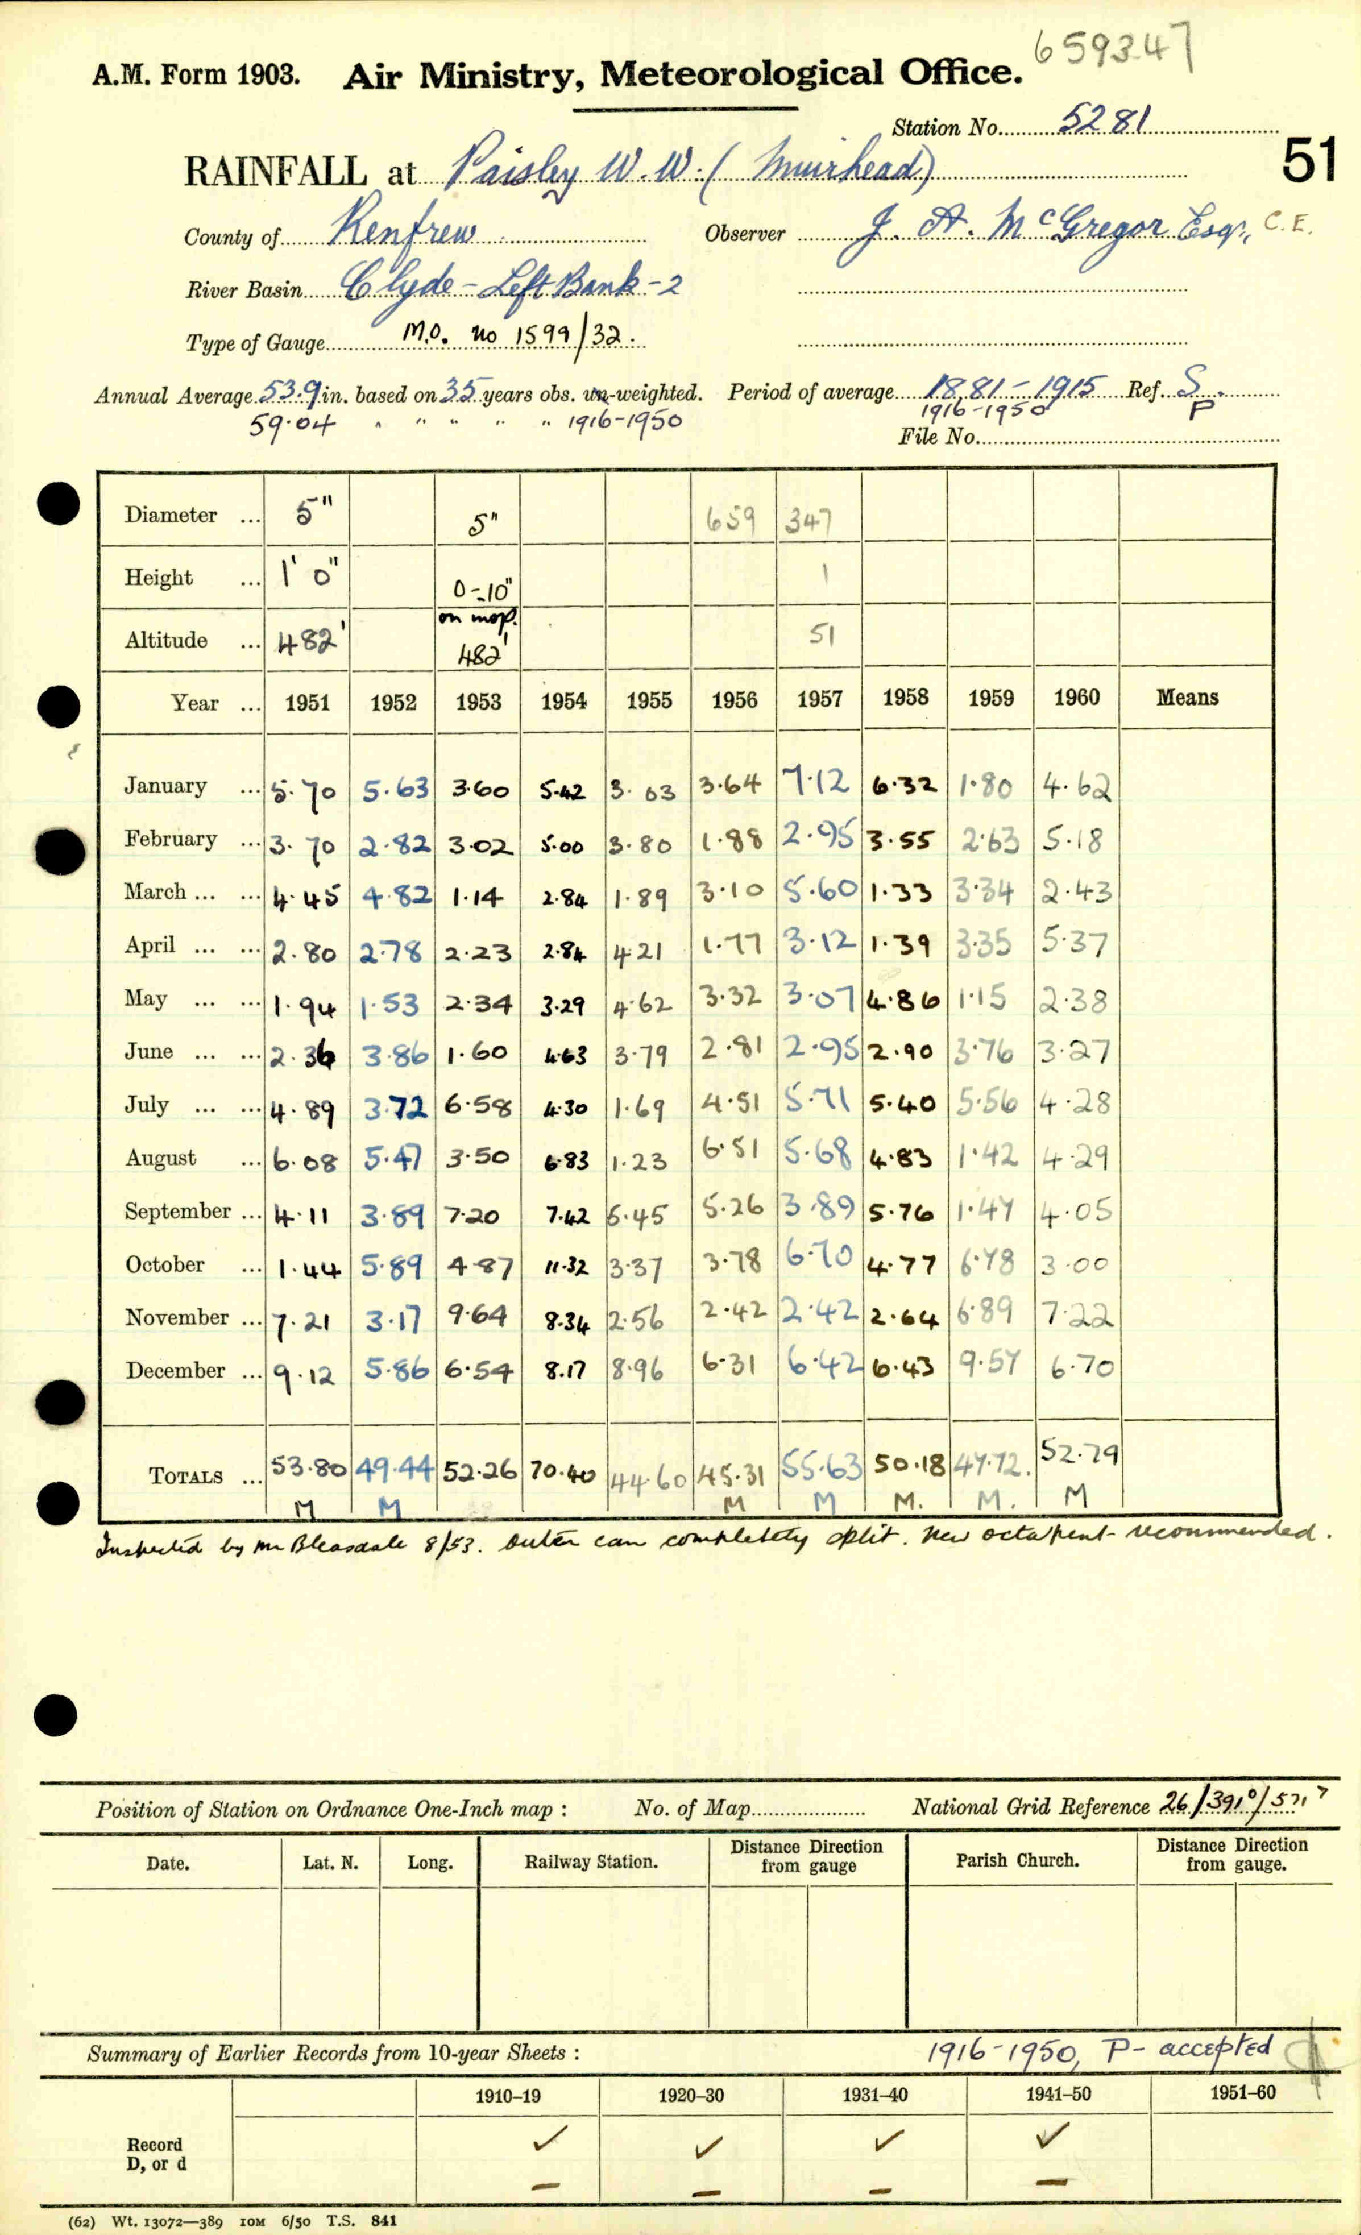 659347
A.M. Form 1903. Air Ministry, Meteorological Office.
Station No. 5281
51
RAINFALL at Paisley W.W. (Muirhead)
County of Renfrew Observer J. A. McGregor Esq., C.E.
River Basin Clyde - Left Bank - 2
Type of Gauge M.O. no 1599/32.
Annual Average 53.9 in. based on 35 years obs. un-weighted. Period of average 1881-1915 Ref. S.
59.04 " " " " " 1916-1950 1916-1950 P
File No.
Diameter ... 5" 5" 659 347
Height ... 1' 0" 0-10" 1
on mop.
Altitude ... 482' 482' 51
Year ... 1951 1952 1953 1954 1955 1956 1957 1958 1959 1960 Means
January ... 5.70 5.63 3.60 5.42 3.03 3.64 7.12 6.32 1.80 4.62
February ... 3.70 2.82 3.02 5.00 3.80 1.88 2.95 3.55 2.63 5.18
March ... ... 4.45 4.82 1.14 2.84 1.89 3.10 5.60 1.33 3.34 2.43
April ... ... 2.80 2.78 2.23 2.84 4.21 1.77 3.12 1.39 3.35 5.37
May ... ... 1.94 1.53 2.34 3.29 4.62 3.32 3.07 4.86 1.15 2.38
June ... ... 2.36 3.86 1.60 4.63 3.79 2.81 2.95 2.90 3.76 3.27
July ... ... 4.89 3.72 6.58 4.30 1.69 4.51 5.71 5.40 5.56 4.28
August ... 6.08 5.47 3.50 6.83 1.23 6.51 5.68 4.83 1.42 4.29
September ... 4.11 3.89 7.20 7.42 5.45 5.26 3.89 5.76 1.47 4.05
October ... 1.44 5.89 4.87 11.32 3.37 3.78 6.70 4.77 6.78 3.00
November ... 7.21 3.17 9.64 8.34 2.56 2.42 2.42 2.64 6.89 7.22
December ... 9.12 5.86 6.54 8.17 8.96 6.31 6.42 6.43 9.57 6.70
TOTALS ... 53.80 49.44 52.26 70.40 44.60 45.31 55.63 50.18 47.72. 52.79
M M M M M. M. M
Inspected by Mr Bleasdale 8/53. Outer can completely split. New octapent recommended.
Position of Station on Ordnance One-Inch map : No. of Map National Grid Reference 26/391⁰/571⁷
Date. Lat. N. Long. Railway Station. Distance Direction from gauge Parish Church. Distance Direction from gauge.
Summary of Earlier Records from 10-year Sheets : 1916-1950, P - accepted
1910–19 1920–30 1931–40 1941–50 1951–60
Record ✓ ✓ ✓ ✓
D, or d – – – –
(62) Wt. 13072—389 10M 6/50 T.S. 841